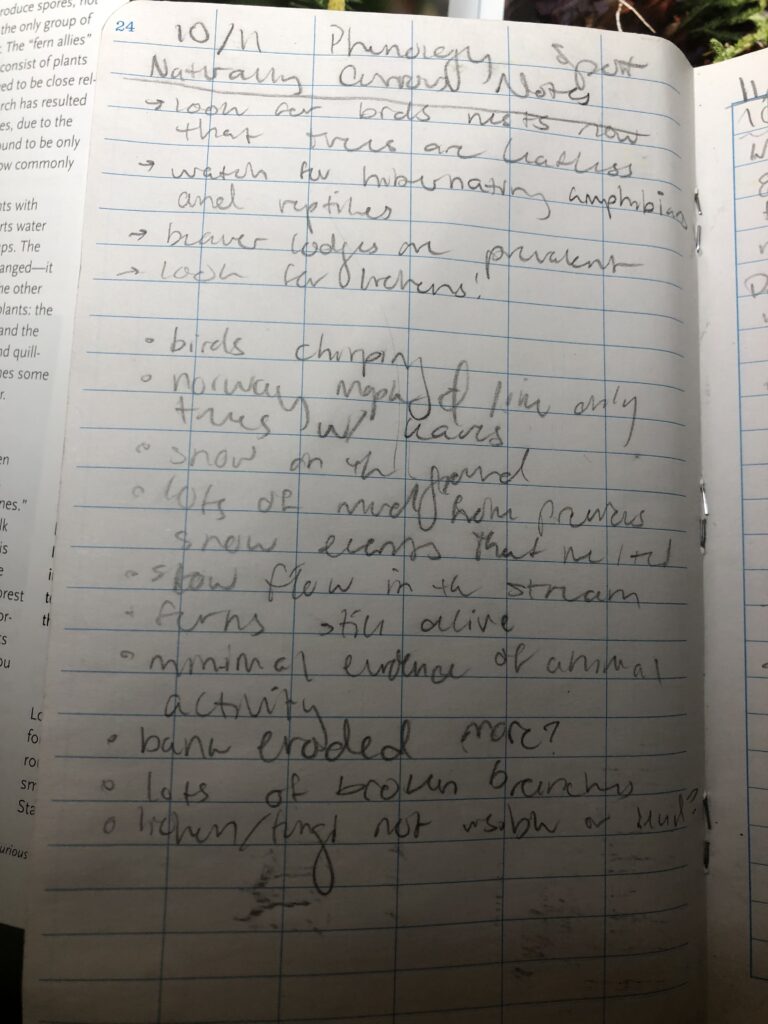 roduce spores, not
the only group of
. The "fern allies"
consist of plants
ed to be close rel-
rch has resulted
es, due to the
und to be only
ow commonly
nts with
rts water
ps. The
anged—it
he other
plants: the
and the
d quill-
mes some
r.
en
nes."
lk
is
e
orest
or-
s
ou
Lo
fo
ro
sm
Sta
urious
24
10/11 Phenology Spot
Naturally Curious Notes
→ look for birds nests now
that trees are leafless
→ watch for hibernating amphibians
and reptiles
→ beaver lodges are prevalent
→ look for lichens!
• birds chirping
• norway maple & line only
trees w/ leaves
• snow on the ground
• lots of mud from previous
snow events that melted
• slow flow in the stream
• ferns still alive
• minimal evidence of animal
activity
• bank eroded more?
• lots of brown branches
• lichen/fungi not visible or